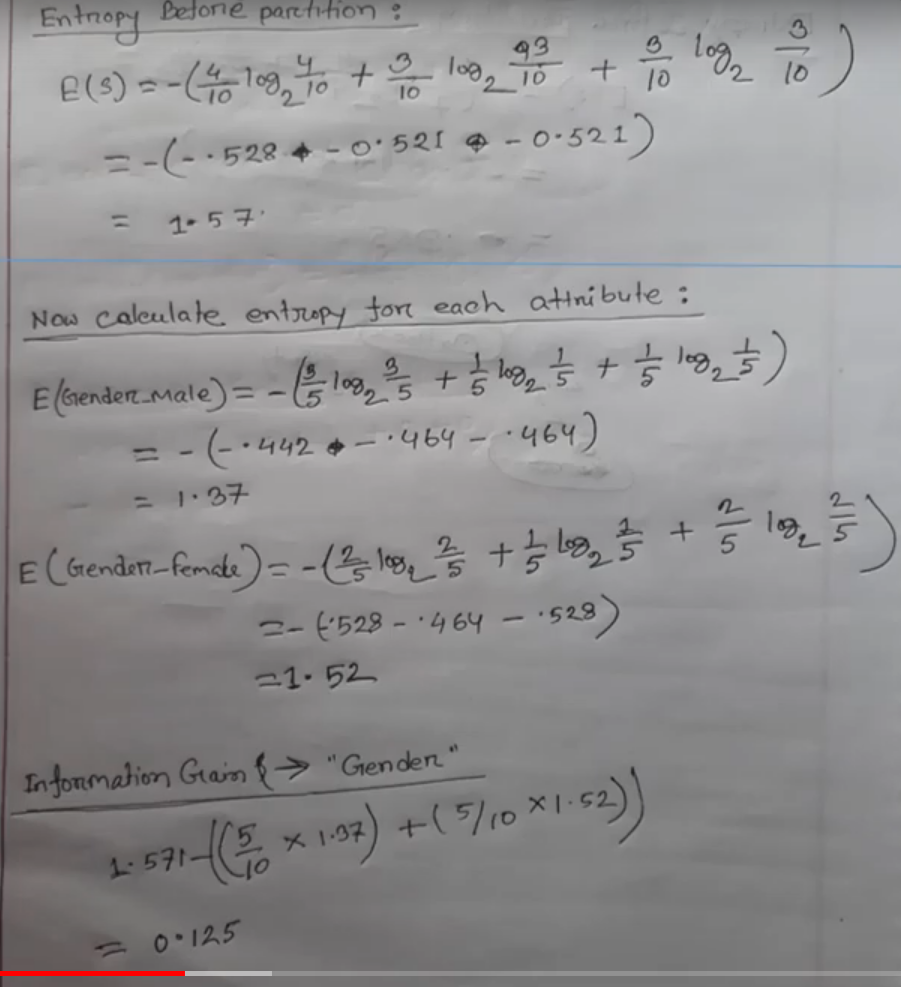 Entropy Before partition :
E(S) = -(4/10 log₂ 4/10 + 3/10 log₂ 3/10 + 3/10 log₂ 3/10)
= -(-.528 - 0.521 - 0.521)
= 1.57
Now calculate entropy for each attribute :
E(Gender_Male) = -(3/5 log₂ 3/5 + 1/5 log₂ 1/5 + 1/5 log₂ 1/5)
= -(-.442 - .464 - .464)
= 1.37
E(Gender-female) = -(2/5 log₂ 2/5 + 1/5 log₂ 1/5 + 2/5 log₂ 2/5)
= -(-.528 - .464 - .528)
= 1.52
Information Gain → "Gender"
1.571-((5/10 × 1.37) + (5/10 × 1.52))
= 0.125